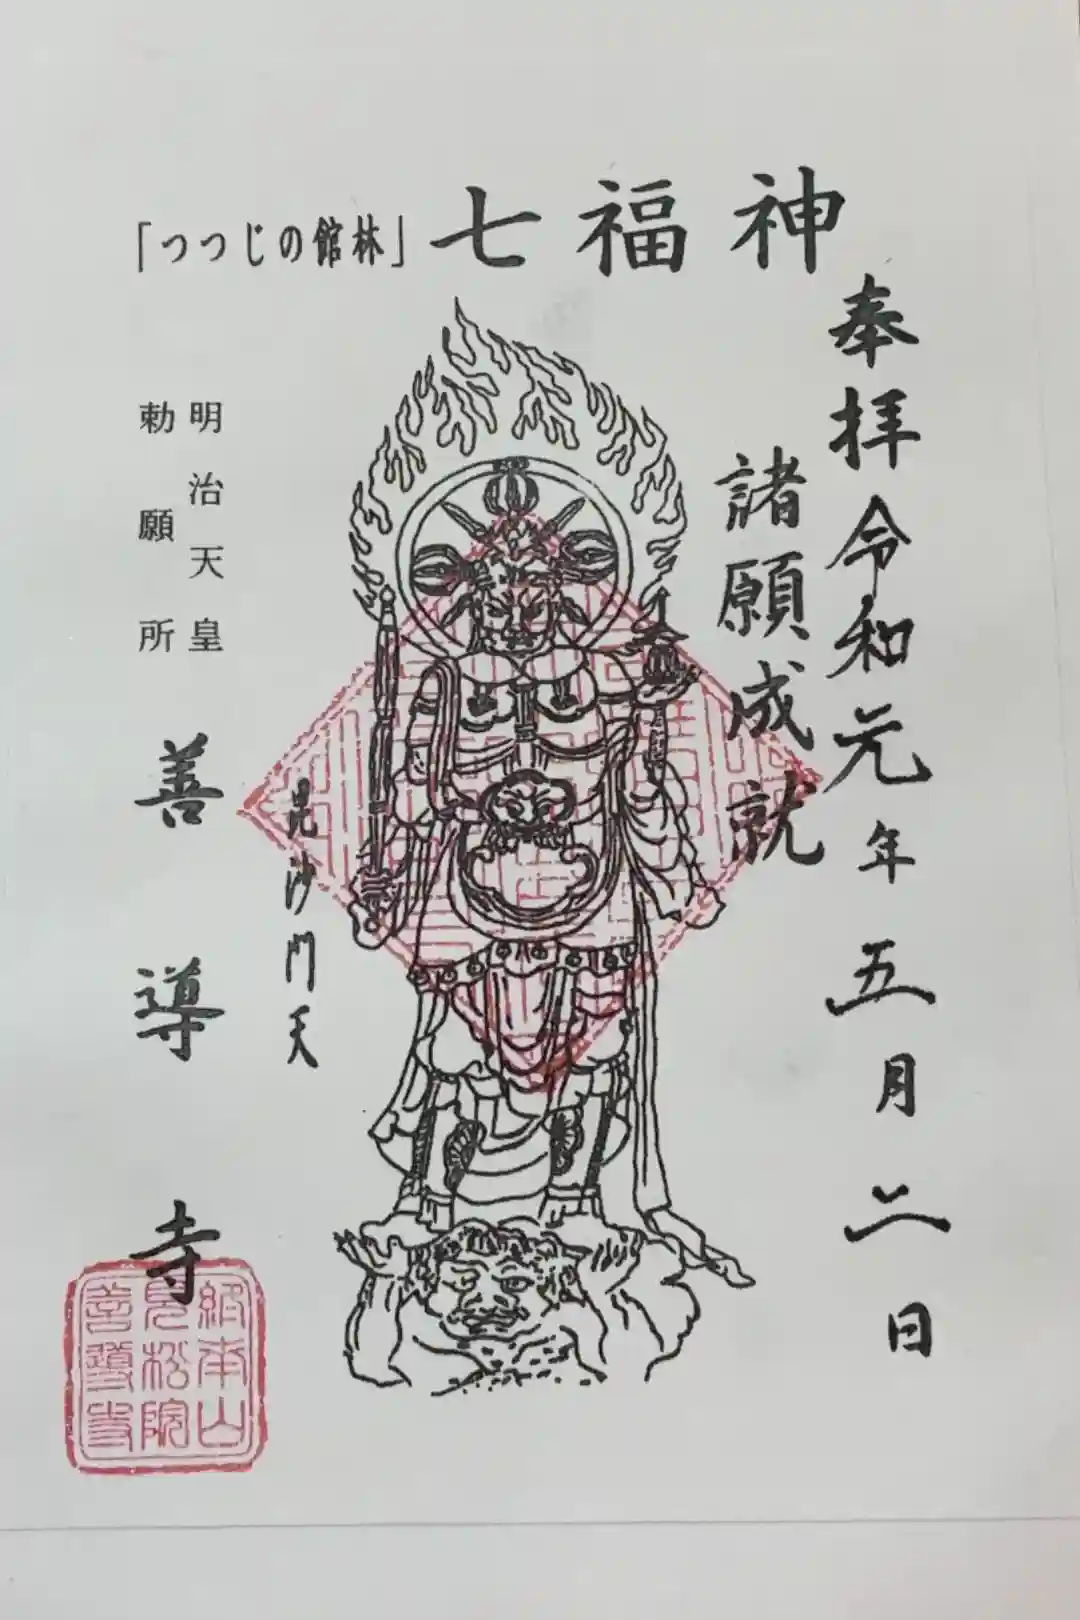 「つつじの館林」七福神
奉拝令和元年五月二日
諸願成就
毘沙門天
明治天皇
勅願所
善導寺
終南山
見松院
善導寺